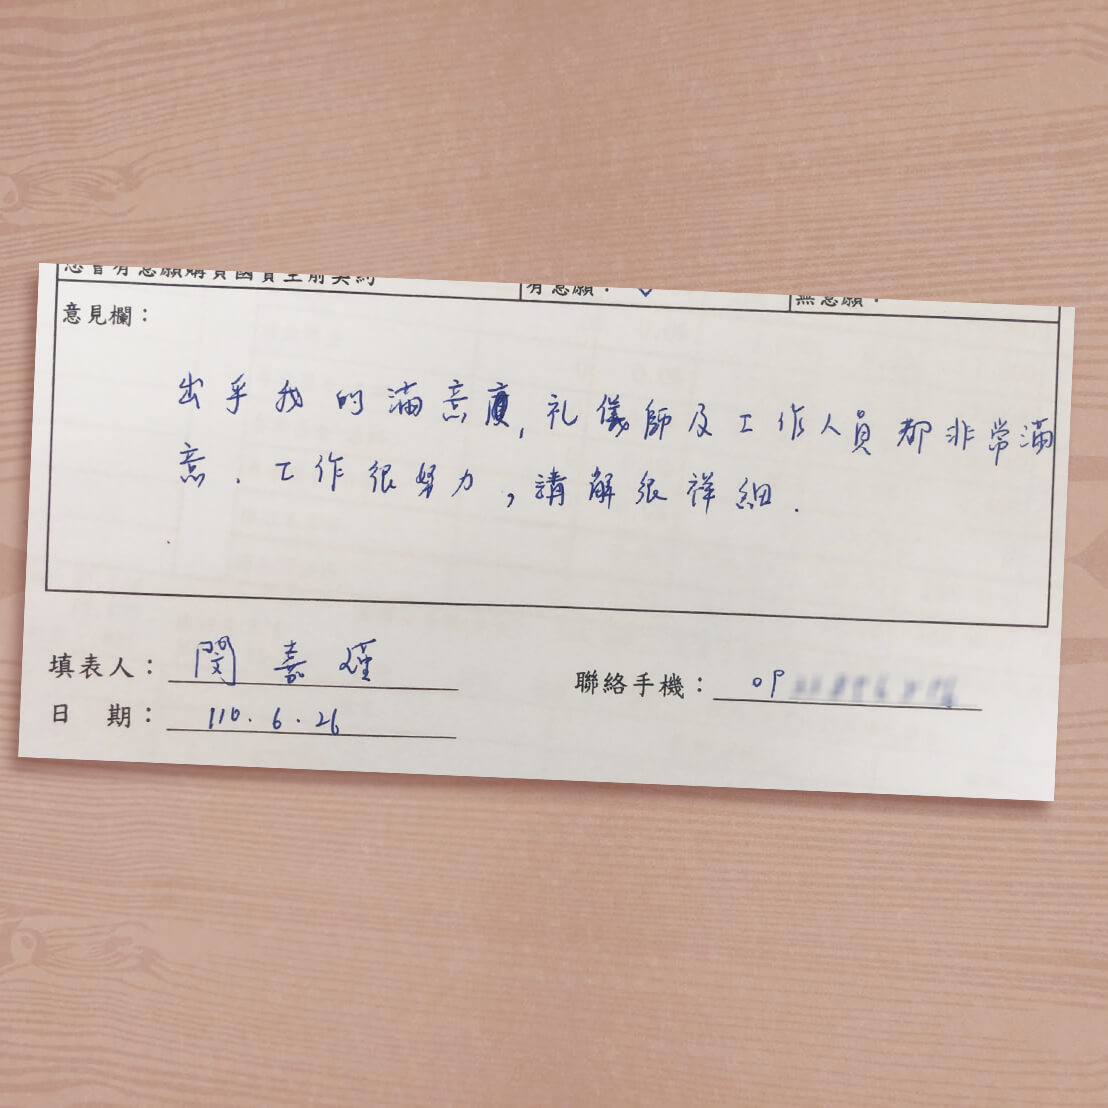 您會有意願購買國寶生前契約 有意願： ✓ 無意願：
意見欄：
出乎我的滿意度,礼儀師及工作人員都非常滿
意.工作很努力,講解很祥細.
填表人：閔嘉 聯絡手機：09
日 期：110.6.26